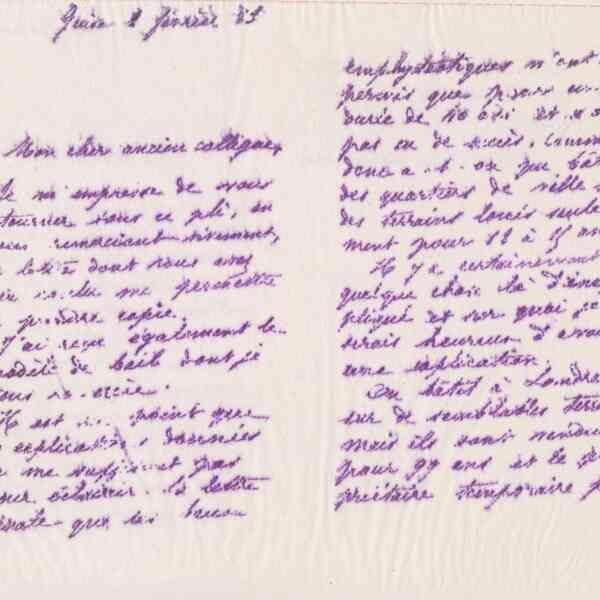 Guise 2 février 83
Mon cher ancien collègue,
Je m'empresse de vous
retourner sous ce pli, en
vous remerciant vivement,
la lettre dont vous avez
me permettre
prendre copie.
J'ai reçu également le
modèle de bail dont je
vous
Il est point que
explications données
me suffisent pas
pour éclaircir la lettre
que les baux
emphytéotiques n'ont
permis que pour un
durée de 50 ans et n'o
pas eu de succès. Comm
donc a-t-on pu bât
des quartiers de ville
des terrains loués seule
ment pour 12 à 15 an
Il y a certainement
quelque chose là d'inex
pliqué et sur quoi je
serais heureux d'avo
une explication.
On bâtit à Londre
sur de semblables terr
mais ils sont vendu
pour 99 ans et le p
priétaire temporaire p